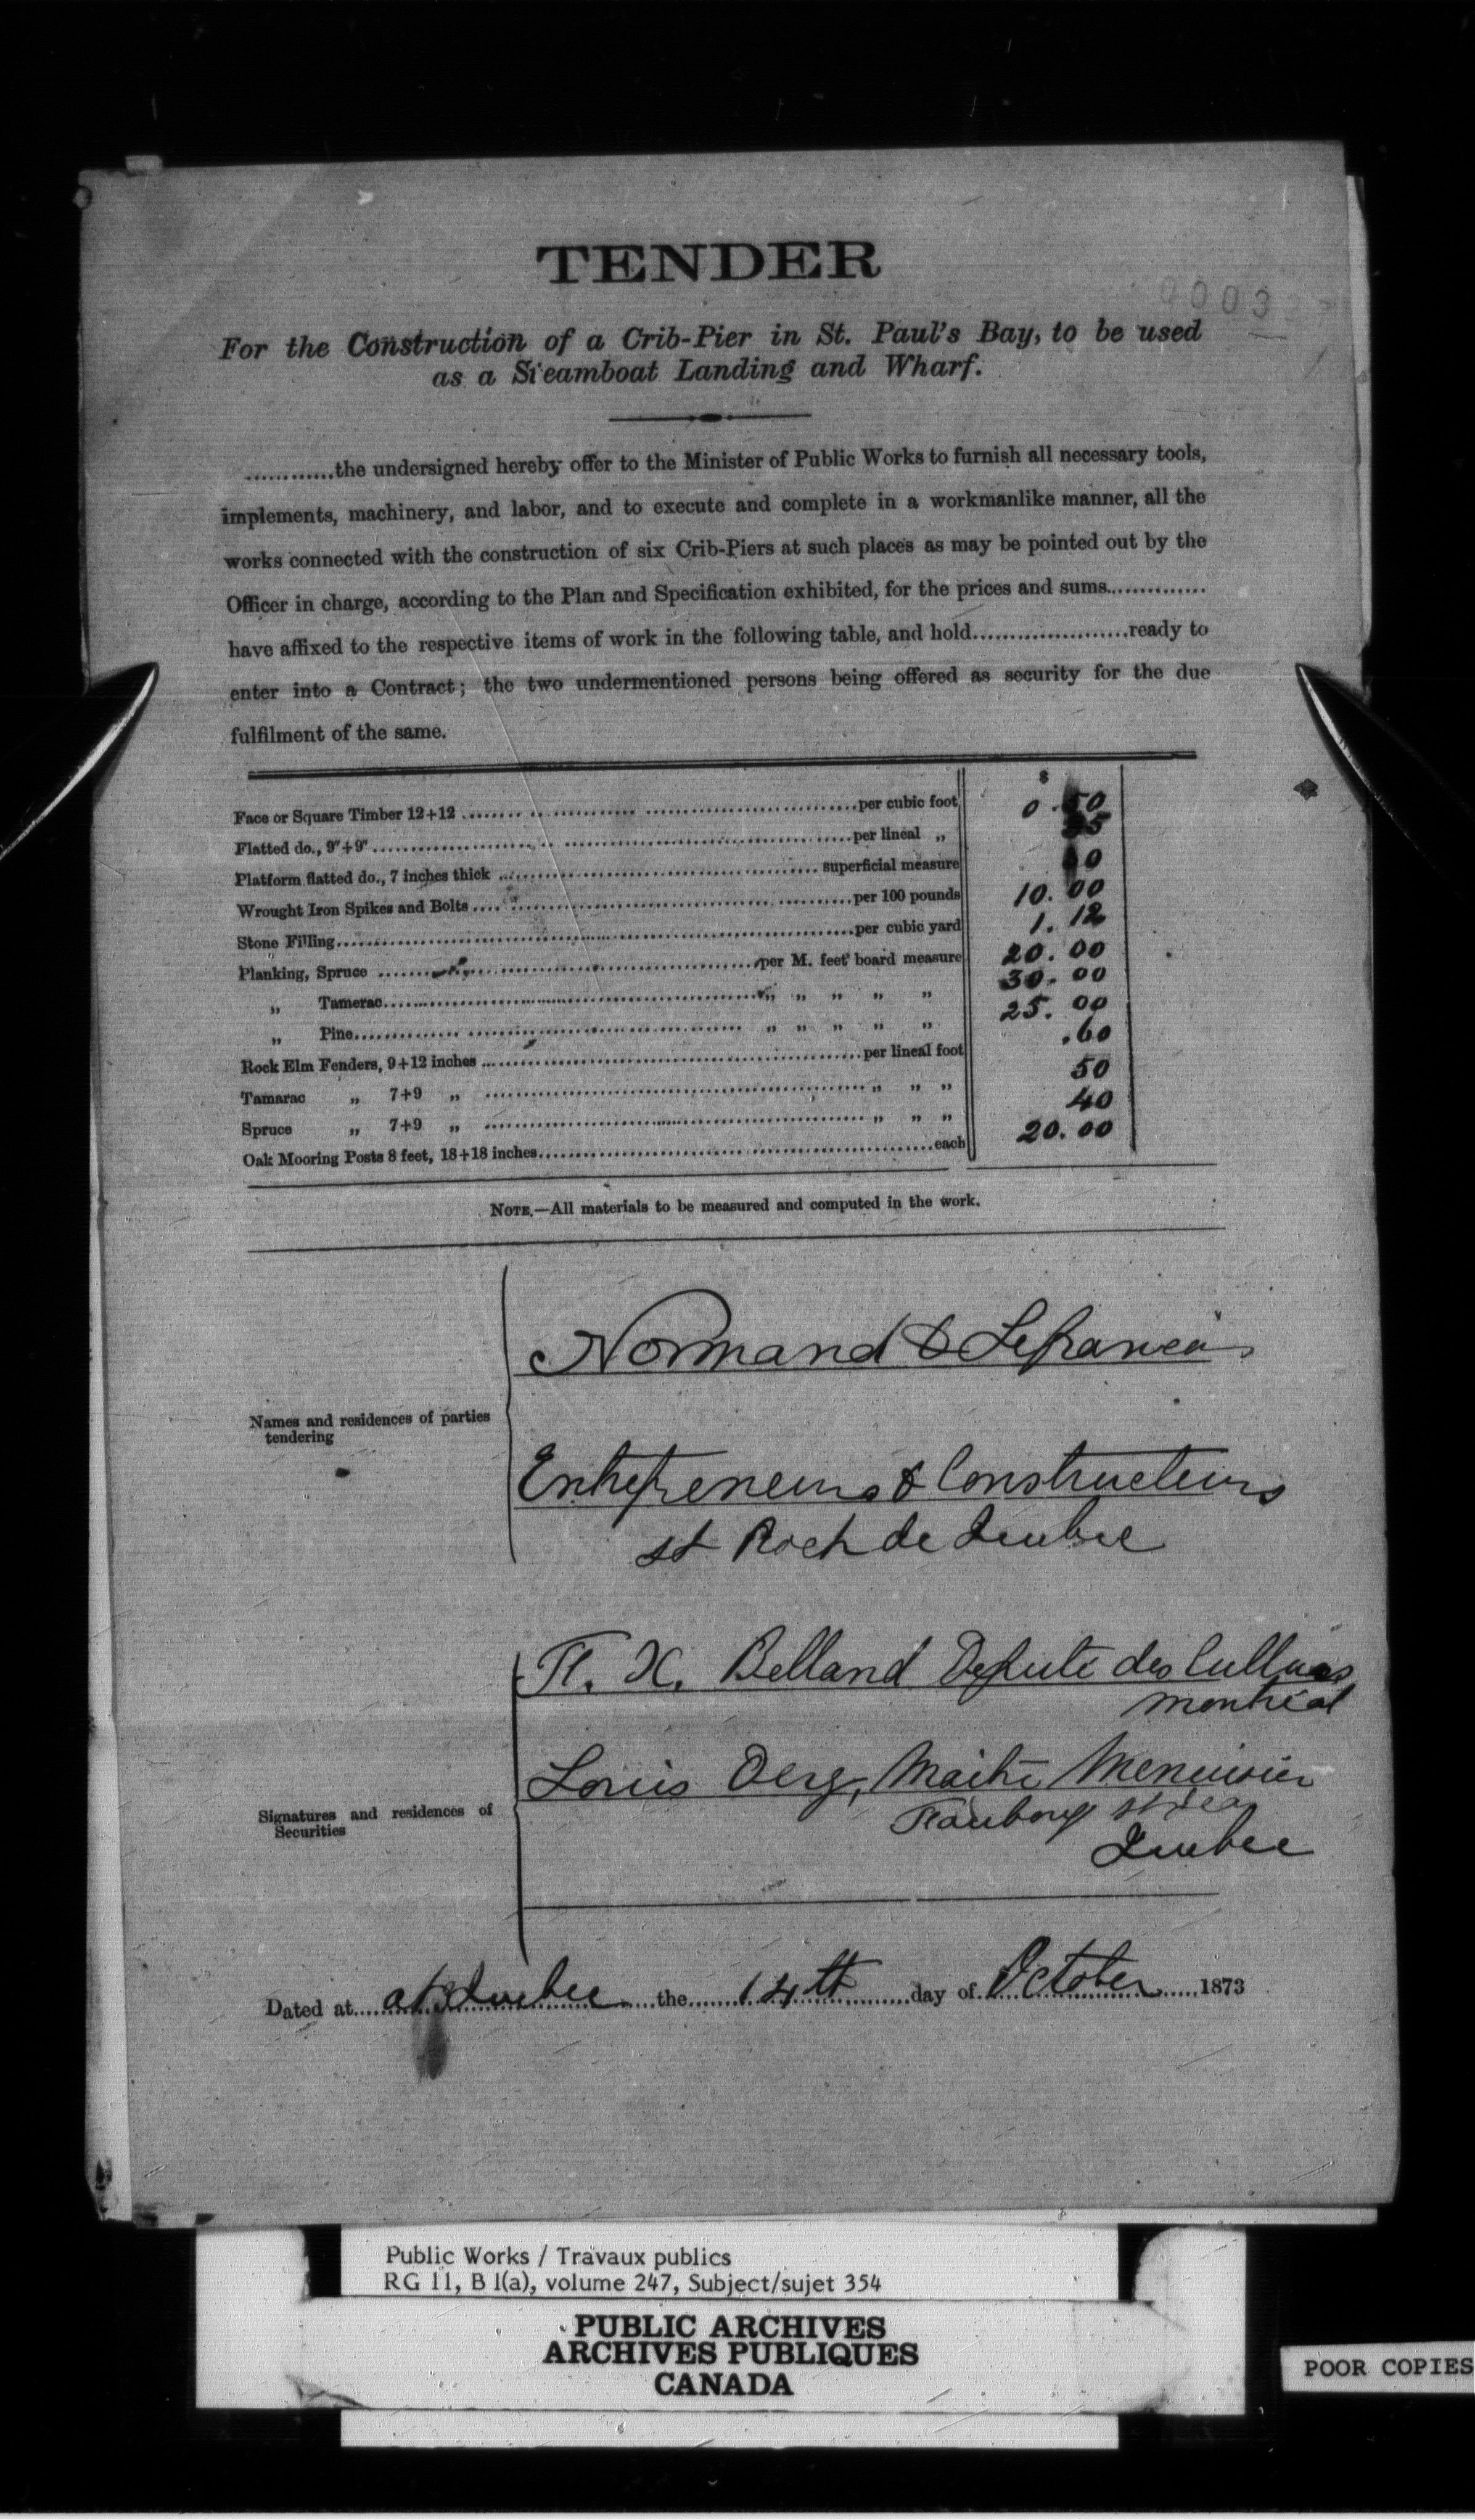 TENDER
0003
For the Construction of a Crib-Pier in St. Paul's Bay, to be used
as a Steamboat Landing and Wharf.
............the undersigned hereby offer to the Minister of Public Works to furnish all necessary tools,
implements, machinery, and labor, and to execute and complete in a workmanlike manner, all the
works connected with the construction of six Crib-Piers at such places as may be pointed out by the
Officer in charge, according to the Plan and Specification exhibited, for the prices and sums..............
have affixed to the respective items of work in the following table, and hold.....................ready to
enter into a Contract; the two undermentioned persons being offered as security for the due
fulfilment of the same.
$
Face or Square Timber 12+12 ........ per cubic foot 0.50
Flatted do., 9"+9" ........ per lineal „
Platform flatted do., 7 inches thick ........ superficial measure
Wrought Iron Spikes and Bolts ........ per 100 pounds 10.00
Stone Filling ........ per cubic yard 1.12
Planking, Spruce ........ per M. feet board measure 20.00
„ Tamerac ........ „ „ „ „ „ 30.00
„ Pine ........ „ „ „ „ „ 25.00
Rock Elm Fenders, 9+12 inches ........ per lineal foot .60
Tamarac „ 7+9 „ ........ „ „ „ 50
Spruce „ 7+9 „ ........ „ „ „ 40
Oak Mooring Posts 8 feet, 18+18 inches ........ each 20.00
NOTE.—All materials to be measured and computed in the work.
Normand & Lefrancois
Names and residences of parties
tendering
Entrepreneurs & Constructeurs
st Roch de Quebec
F. X. Belland Depute des Culleurs
Montréal
Louis Maitre Menuisier
Signatures and residences of
Securities
Faubourg st
Quebec
Dated at at Quebec the 14th day of October 1873
Public Works / Travaux publics
RG 11, B 1(a), volume 247, Subject/sujet 354
PUBLIC ARCHIVES
ARCHIVES PUBLIQUES
CANADA
POOR COPIES